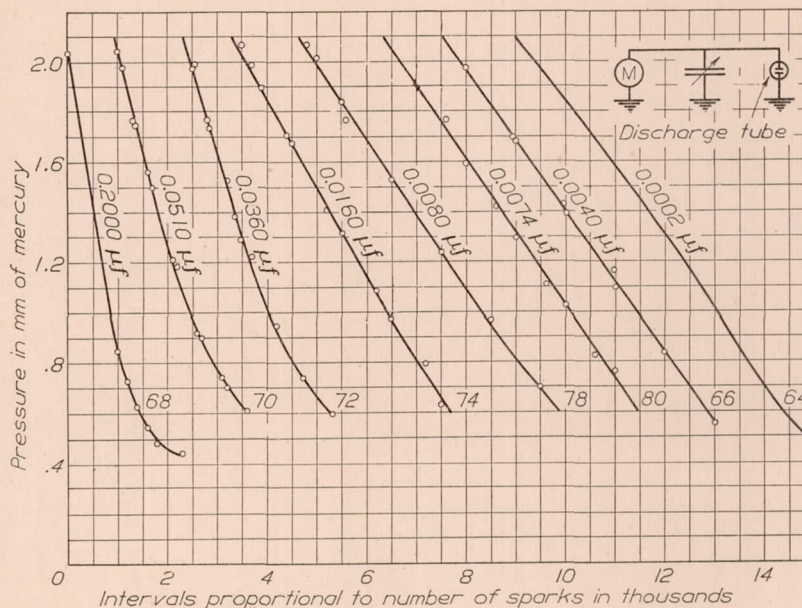 M
Discharge tube
Pressure in mm of mercury
2.0
1.6
1.2
.8
.4
0
0.2000 μf
0.0510 μf
0.0360 μf
0.0160 μf
0.0080 μf
0.0074 μf
0.0040 μf
0.0002 μf
68
70
72
74
78
80
66
64
0 2 4 6 8 10 12 14
Intervals proportional to number of sparks in thousands